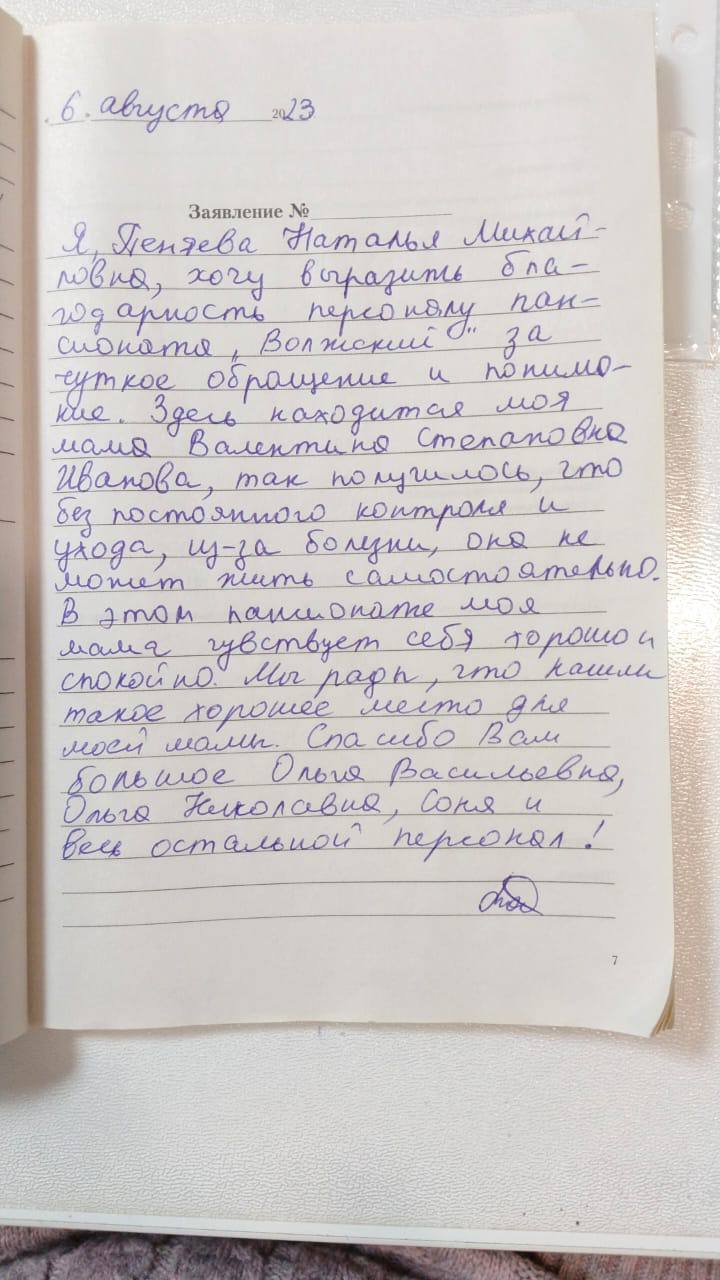 6. августа 2023
Заявление №
Я, Пентева Наталья Михай-
ловна, хочу выразить бла-
годарность персоналу пан-
сионата „Волжский" за
чуткое обращение и понима-
ние. Здесь находится моя
мама Валентина Степановна
Иванова, так получилось, что
без постоянного контроля и
ухода, из-за болезни, она не
может жить самостоятельно.
В этом пансионате моя
мама чувствует себя хорошо и
спокойно. Мы рады, что нашли
такое хорошее место для
моей мамы. Спасибо Вам
большое Ольга Васильевна,
Ольга Николавна, Соня и
весь остальной персонал!
7